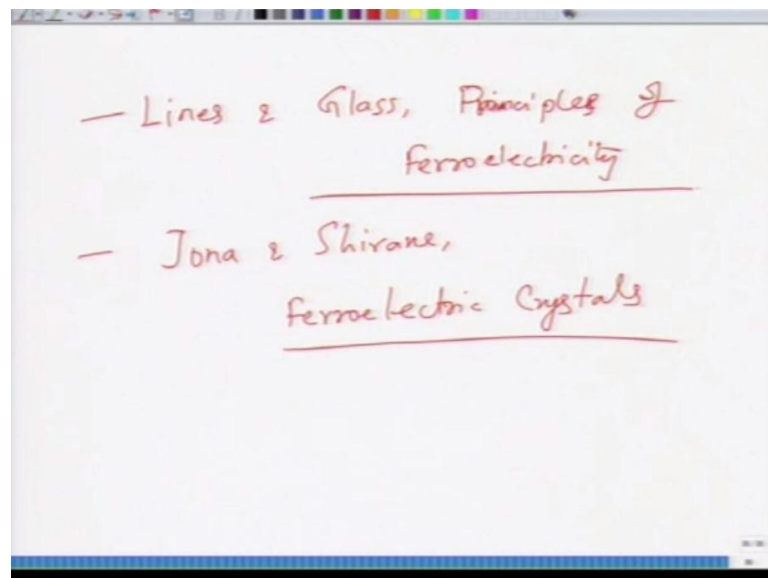 — Lines & Glass, Principles of
Ferroelectricity
— Jona & Shirane,
Ferroelectric Crystals